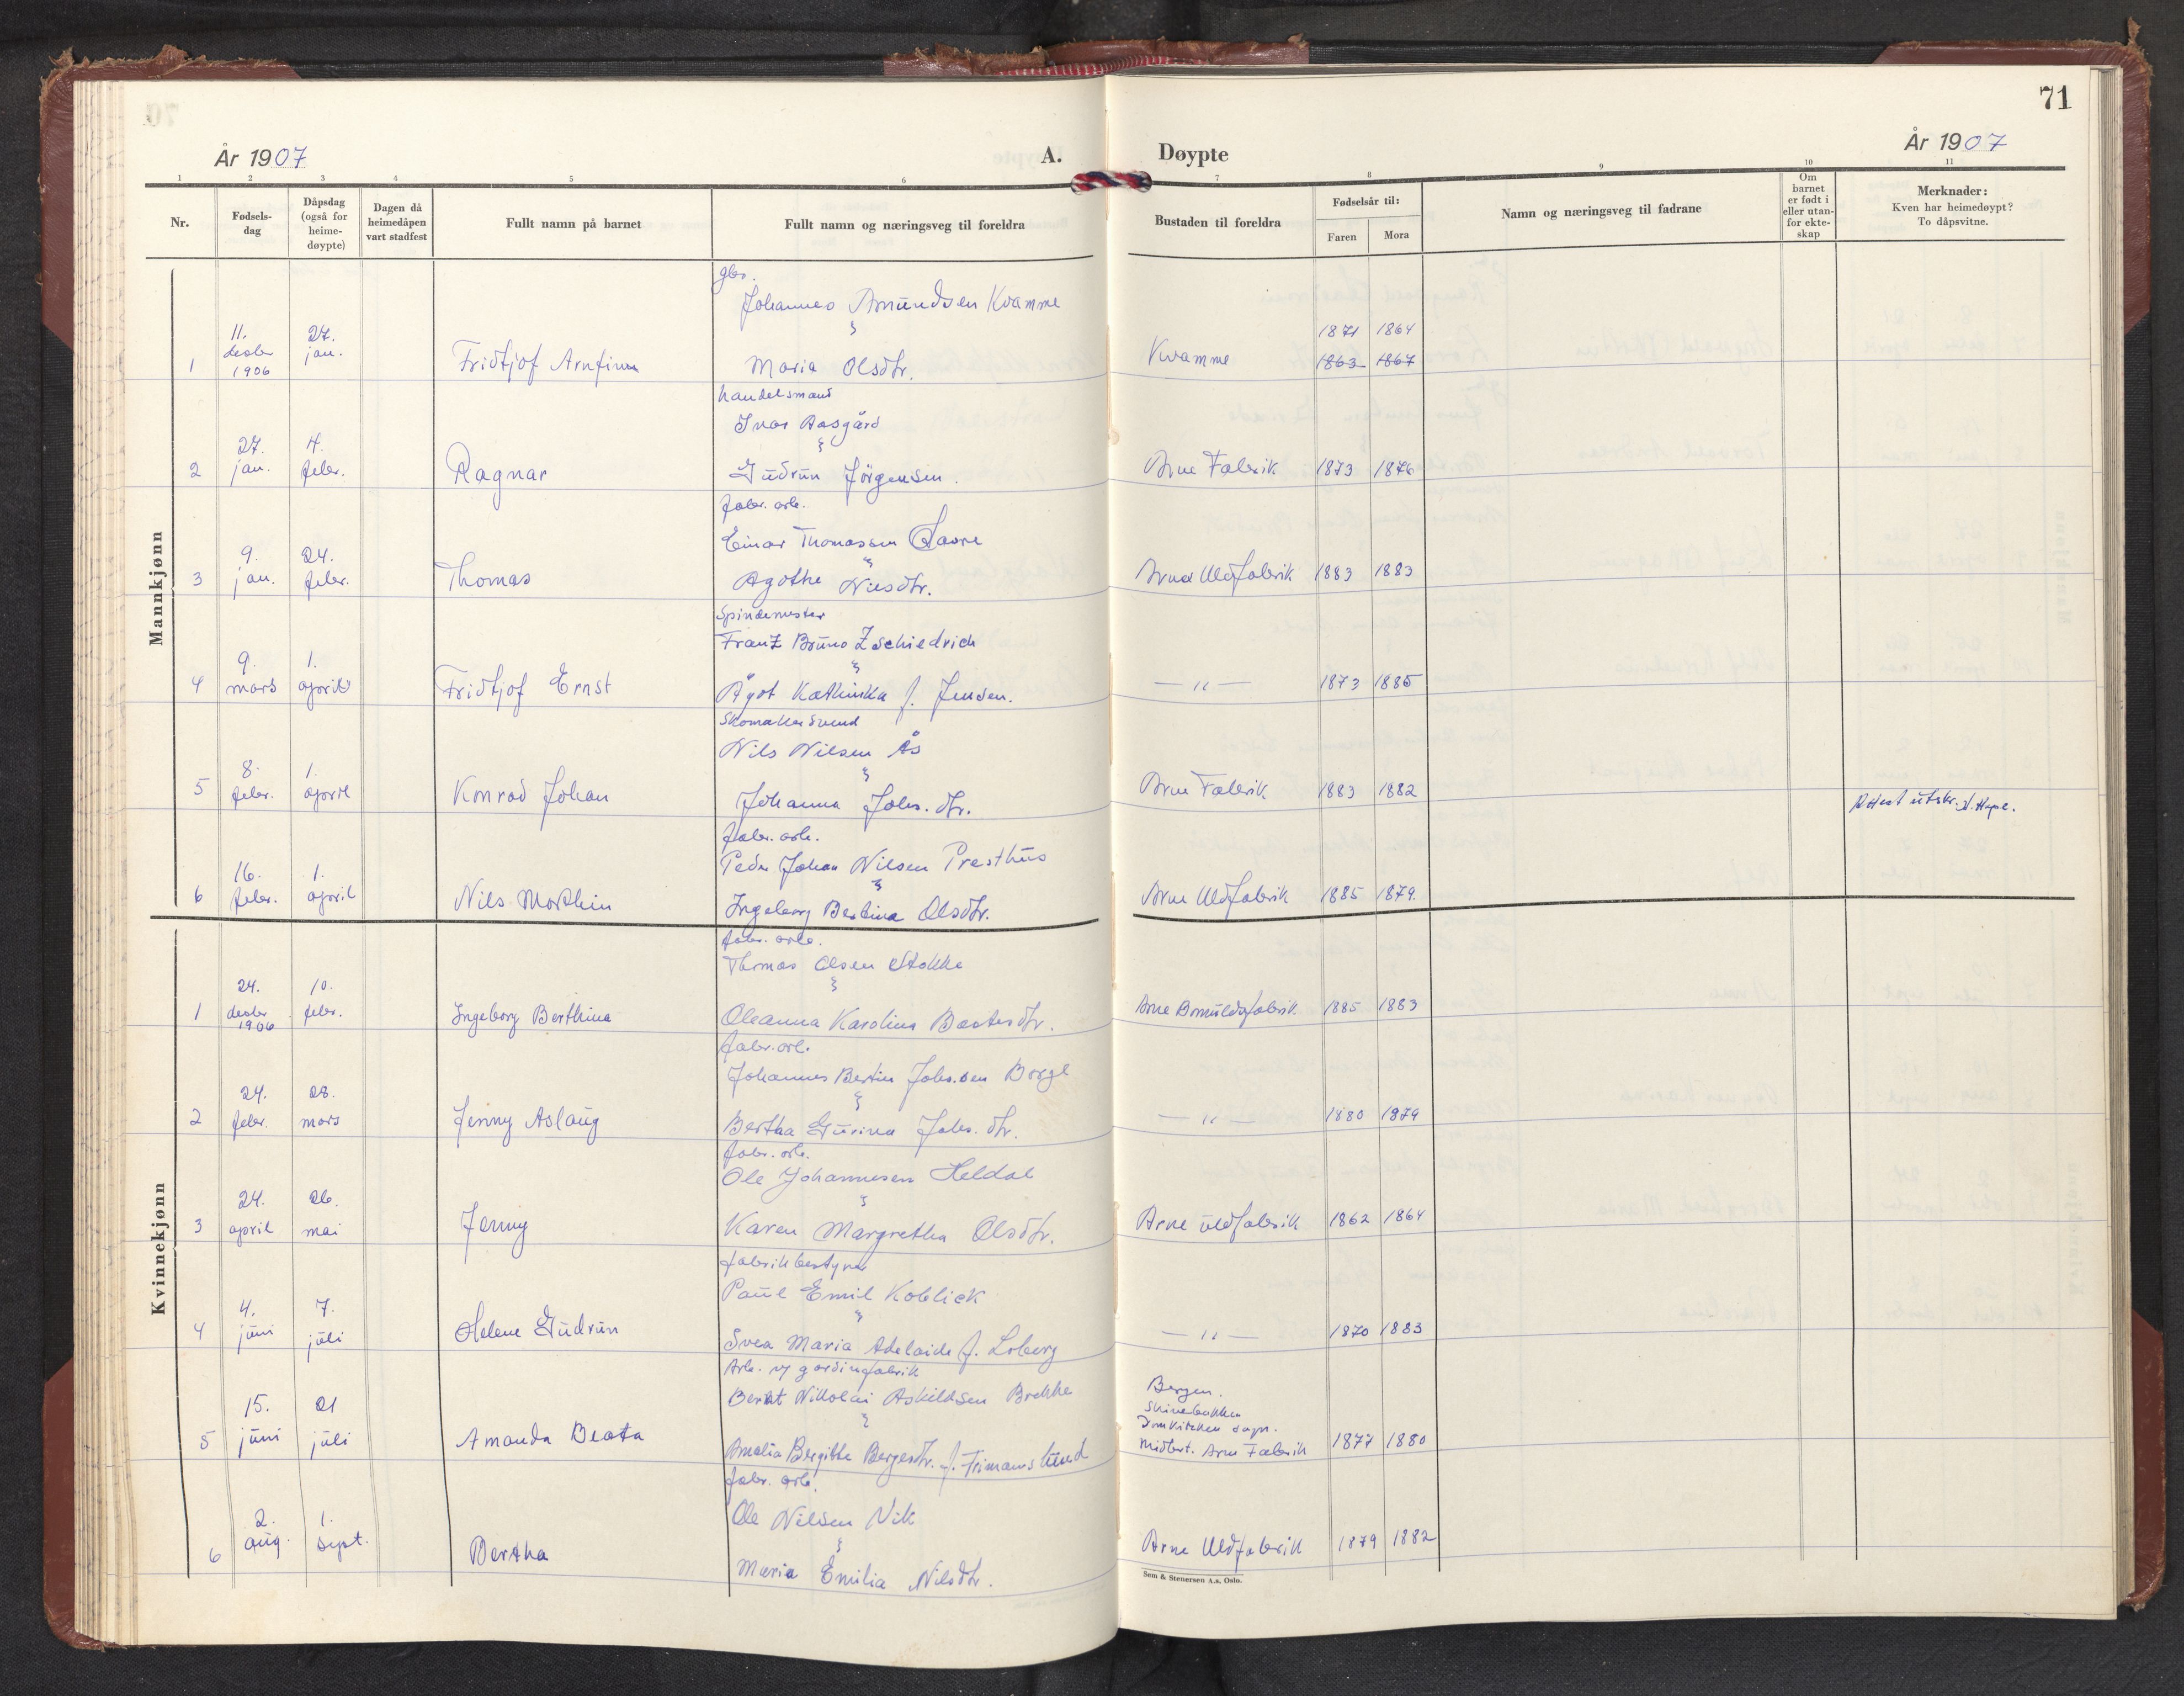 71
År 1907
A.
Døypte
År 1907
1 2 3 4 5 6 7 8 9 10 11
Nr.
Fødsels-
dag
Dåpsdag
(også for
heime-
døypte)
Dagen då
heimedåpen
vart stadfest
Fullt namn på barnet
Fullt namn og næringsveg til foreldra
Bustaden til foreldra
Fødselsår til:
Faren Mora
Namn og næringsveg til fadrane
Om
barnet
er født i
eller utan-
for ekte-
skap
Merknader:
Kven har heimedøypt?
To dåpsvitne.
Mannkjønn
gbr.
Johannes Amundsen Kvamme
11. 27. 1871 1864
1 desbr jan. Fridtjof Arnfinn Maria Olsdtr. Kvamme 1863 1867
1906
handelsmand
Ivar Aasgård
27. 4.
2 jan. febr. Ragnar Gudrun Jörgensen. Arne Fabrik 1873 1876
fabr. arb.
Einar Thomassen
9. 24.
3 jan. febr. Thomas Agathe Nilsdtr. Arne Uldfabrik 1883 1883
Spindemester
Franz Bruno Zschiedrich
9. 1.
4 mars april Fridtjof Ernst Ågot Kathinka f. Jensen. — " — 1873 1885
Skomakersvend
Nils Nilsen Ås
8. 1.
5 febr. april Konrad Johan Johanna Johs. dtr. Arne Fabrik 1883 1882
Attest utskr. N. Hope.
fabr. arb.
Peder Johan Nilsen Presthus
16. 1.
6 febr. april Nils Mathin Ingeborg Bertina Olsdtr. Arne Uldfabrik 1885 1879.
Kvinnekjønn
fabr. arb.
Thomas Olsen Stokke
24. 10.
1 desbr febr. Ingeborg Berthina Oleanna Karolina Baatsdtr. Arne Bomuldsfabrik 1885 1883
1906
fabr. arb.
Johannes Bertin Johs.sen Borge
24. 28.
2 febr. mars Jenny Aslaug Bertha Gurina Johs. dtr. — " — 1880 1879
fabr. arb.
Ole Johannesen Heldal
24. 26.
3 april mai Jenny Karen Margretha Olsdtr. Arne uldfabrik 1862 1864
fabrikbestyrer
Paul Emil Koblick
4. 7.
4 juni juli Helene Gudrun Svea Maria Adelaide f. Loberg — " — 1870 1883
Arb. v/ gardinfabrik
Bernt Nikolai Askildsen Brekke
Bergen.
Skivebakken
15. 21 Domkirken sogn.
5 juni juli Amanda Beata Amalia Bergitte Bergesdtr. f. Trimans lund midlert. Arne Fabrik 1877 1880
fabr. arb.
Ole Nilsen Vik
2. 1.
6 aug. sept. Bertha Maria Emilia Nilsdtr. Arne Uldfabrik 1879 1882
Sem & Stenersen A.s, Oslo.